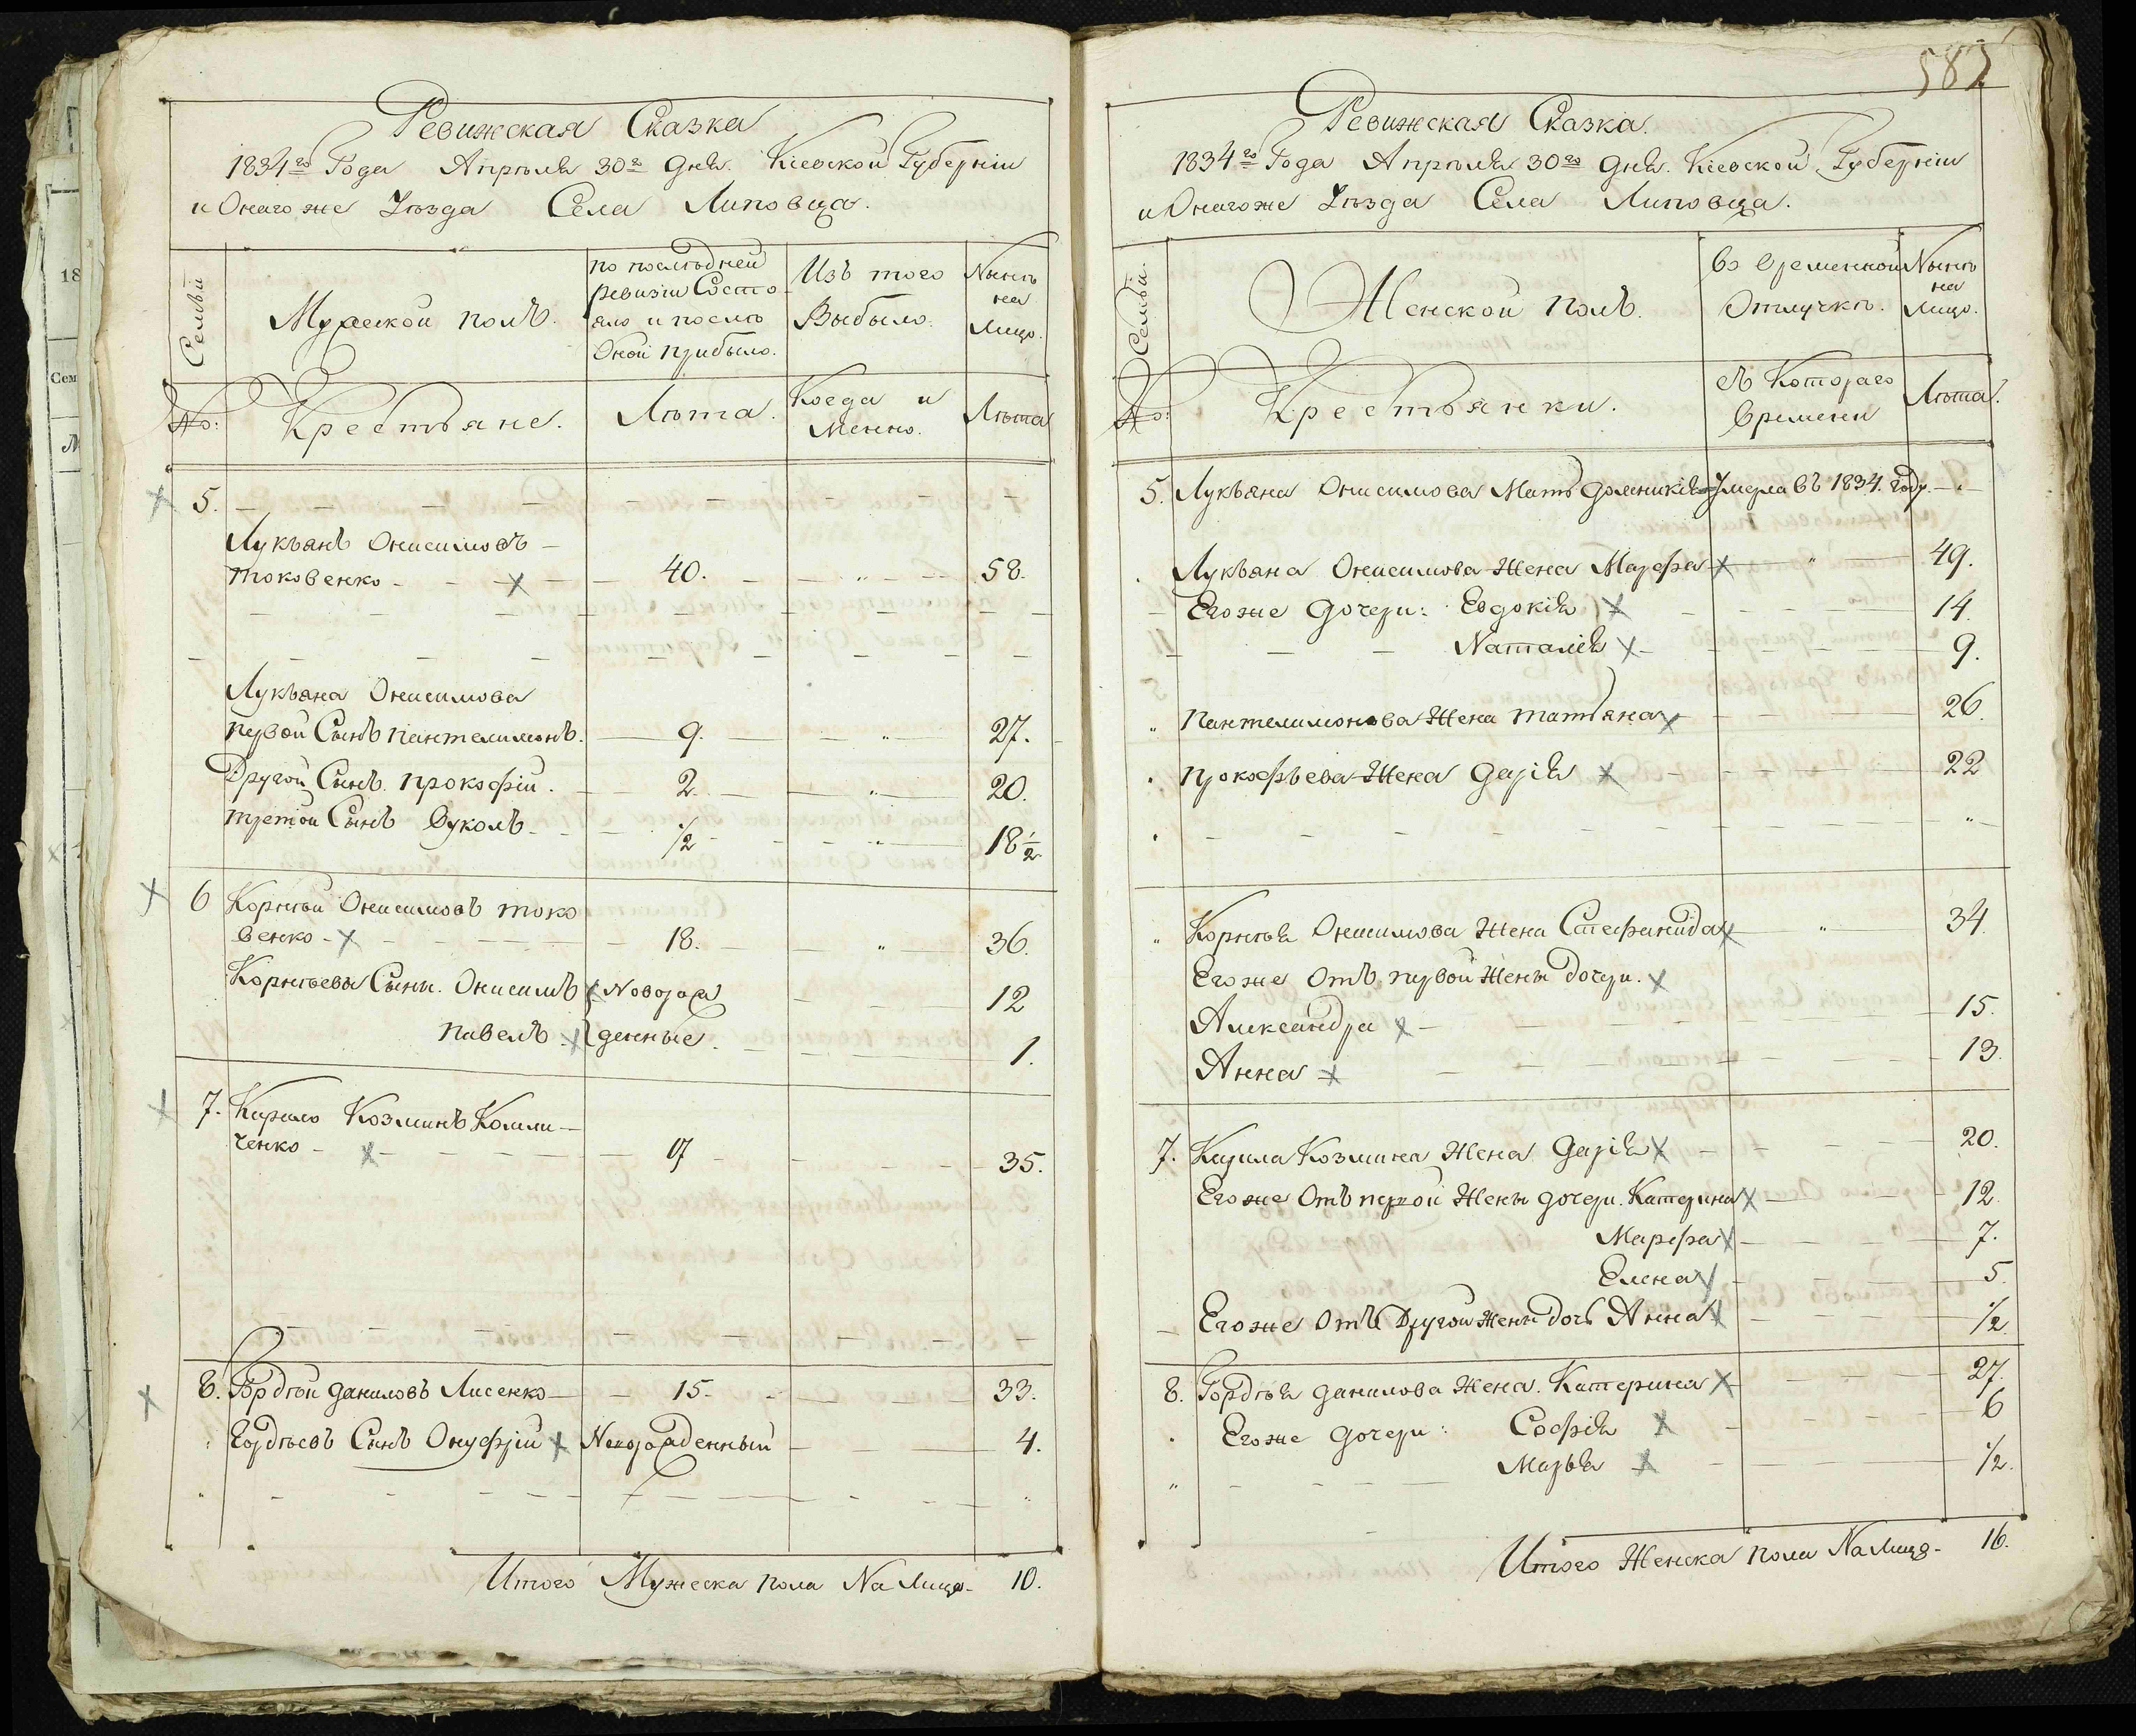 Ревижская Сказка
1834го Года Апрѣля 30го дня. Кіевской Губерніи
и Онагоже Уѣзда Села Липовца.
Семьи
Мужеской полъ.
по послѣдней
ревизіи Состо
яло и послѣ
Оной прибыло.
Изъ того
Выбыло.
Нынѣ
на
Лицо.
№:
Крестьяне.
Лѣта.
Когда и
Менно.
Лѣта
5.
Лукьянъ Онисимовъ
Токовенко 40. 58.
Лукьяна Онисимова
первой Сынъ Пантелимонъ. 9. 27.
Другой Сынъ. Прокофій. 2. 20.
третой Сынъ Вуколъ 1/2 18 1/2
6 Корнѣй Онисимовъ Токо
венко 18. 36.
Корнѣевы Сыны. Онисимъ Новорож 12
Павелъ денные 1.
7. Кирило Козминъ Колли
ченко 17 35.
8. Гордѣй Даниловъ Лисенко 15. 33.
Гордѣевъ Сынъ Онуфрій Новорожденный 4.
Итого Мужеска пола На Лицо 10.
587
Ревижская Сказка.
1834го Года Апрѣля 30го дня. Кіевской Губерніи
и Онагоже Уѣзда Села Липовца.
Семьи.
Женской полъ.
во временной
Отлучкѣ.
Нынѣ
на
Лицо.
№:
Крестьянки.
съ Котораго
времени
Лѣта.
5. Лукьяна Онисимова Мать Домникія Умерла въ 1834. году.
Лукьяна Онисимова Жена Марфа 49.
Егоже дочери: Евдокія 14.
Наталія 9.
Пантелимонова Жена Татьяна 26.
Прокофьева Жена Дарія 22
Корнѣя Онисимова Жена Стефанида 34
Егоже Отъ первой Жены Дочери.
Александра 15.
Анна 13.
7. Кирила Козмина Жена Дарія 20.
Егоже Отъ первой Жены дочери. Катерина 12.
Марфа 7.
Елена 5.
Егоже Отъ Другой Жены Дочь Анна 1/2
8. Гордѣя Данилова Жена. Катерина 27.
Егоже дочери: Софія 6
Марья 1/2.
Итого Женска пола На Лицо 16.